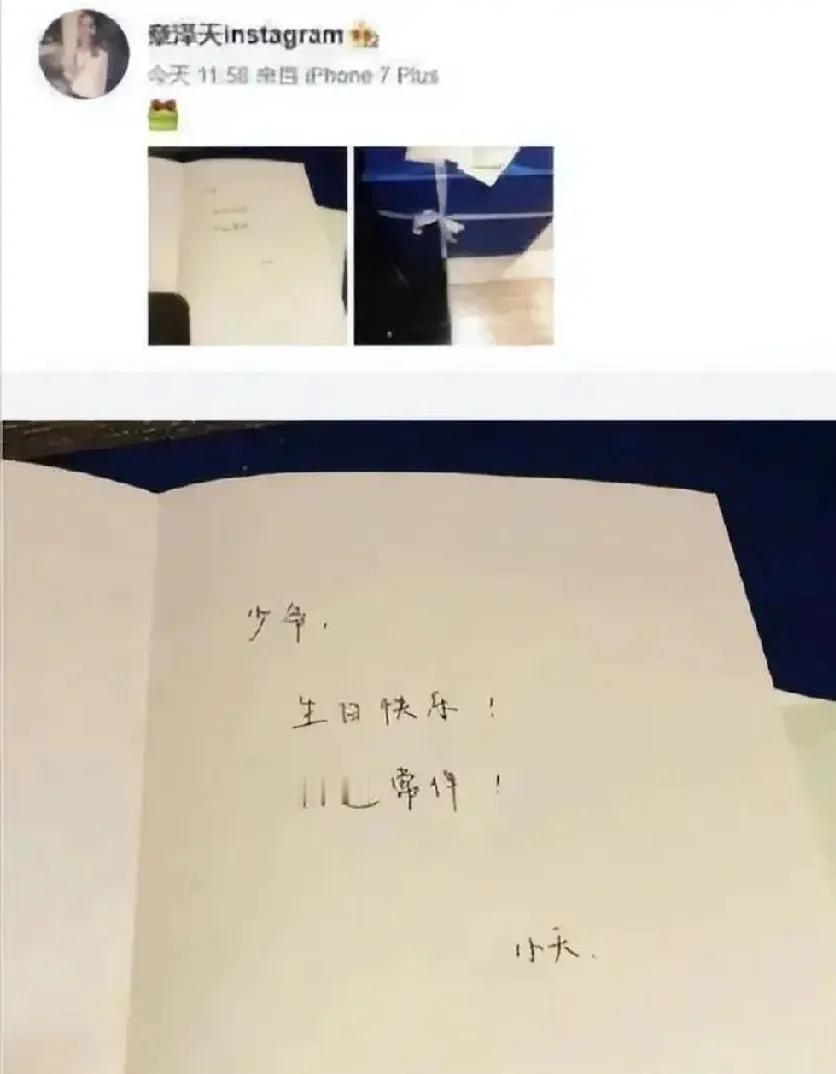 章泽天Instagram
今天 11:58 来自 iPhone 7 Plus
少爷,
生日快乐!
常伴!
小天.